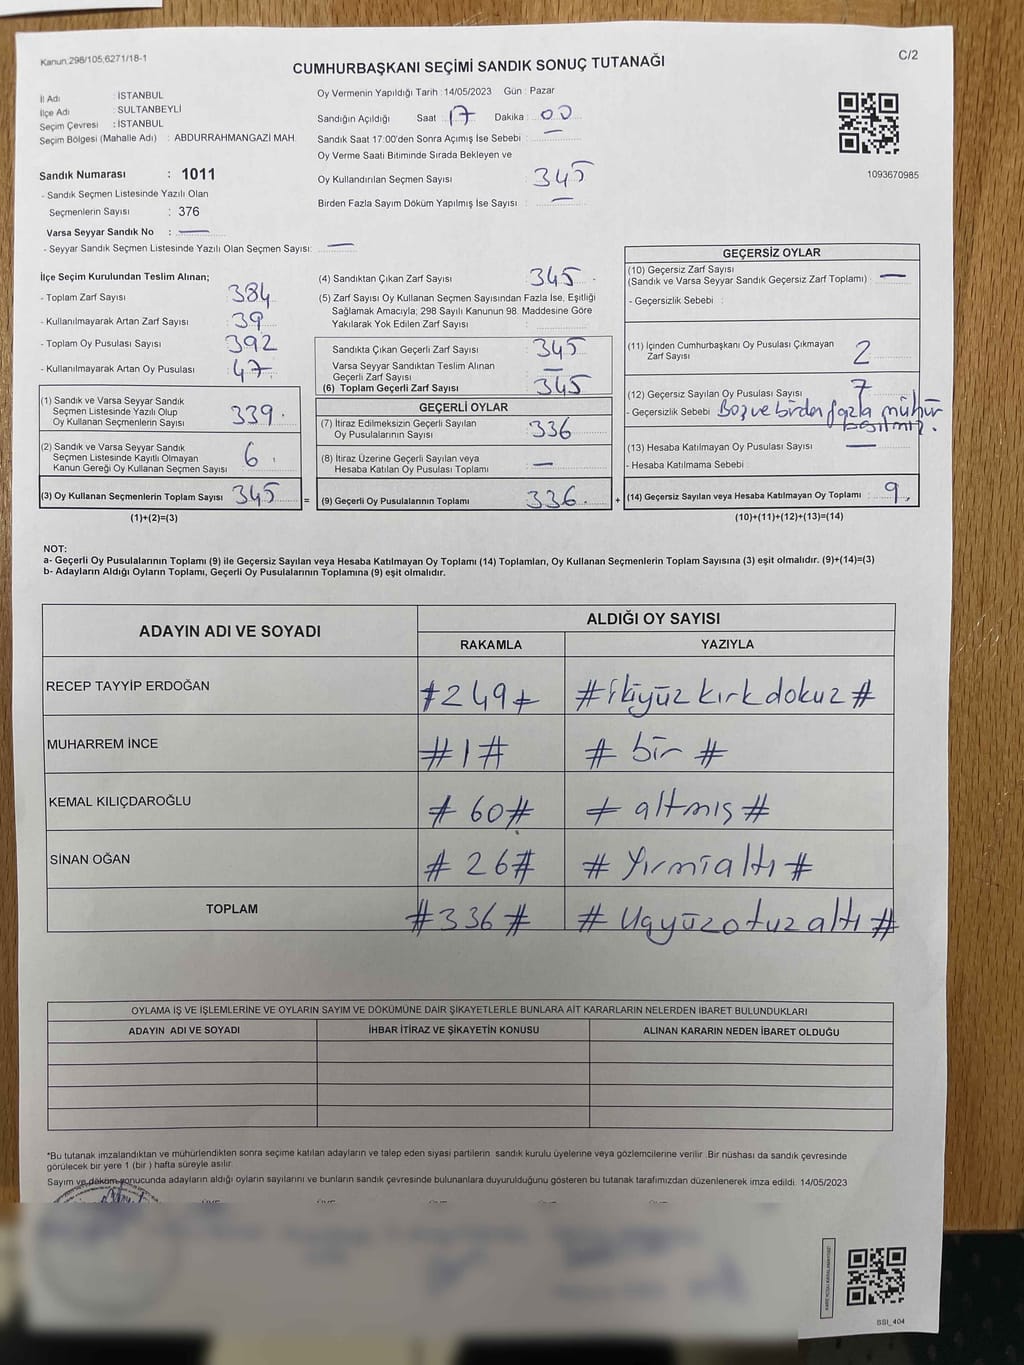 Kanun.298/105,6271/18-1
C/2
CUMHURBAŞKANI SEÇİMİ SANDIK SONUÇ TUTANAĞI
İl Adı : İSTANBUL
İlçe Adı : SULTANBEYLİ
Seçim Çevresi : İSTANBUL
Seçim Bölgesi (Mahalle Adı) : ABDURRAHMANGAZİ MAH.
Oy Vermenin Yapıldığı Tarih :14/05/2023 Gün : Pazar
Sandığın Açıldığı Saat : 17 Dakika : 00
Sandık Saat 17:00'den Sonra Açımış İse Sebebi : —
Oy Verme Saati Bitiminde Sırada Bekleyen ve
Oy Kullandırılan Seçmen Sayısı : 345
Birden Fazla Sayım Döküm Yapılmış İse Sayısı : —
1093670985
Sandık Numarası : 1011
- Sandık Seçmen Listesinde Yazılı Olan
Seçmenlerin Sayısı : 376
Varsa Seyyar Sandık No : —
- Seyyar Sandık Seçmen Listesinde Yazılı Olan Seçmen Sayısı: —
İlçe Seçim Kurulundan Teslim Alınan;
- Toplam Zarf Sayısı : 384
- Kullanılmayarak Artan Zarf Sayısı : 39
- Toplam Oy Pusulası Sayısı : 392
- Kullanılmayarak Artan Oy Pusulası : 47
(1) Sandık ve Varsa Seyyar Sandık
Seçmen Listesinde Yazılı Olup
Oy Kullanan Seçmenlerin Sayısı : 339
(2) Sandık ve Varsa Seyyar Sandık
Seçmen Listesinde Kayıtlı Olmayan
Kanun Gereği Oy Kullanan Seçmen Sayısı : 6
(3) Oy Kullanan Seçmenlerin Toplam Sayısı : 345
(1)+(2)=(3)
(4) Sandıktan Çıkan Zarf Sayısı : 345
(5) Zarf Sayısı Oy Kullanan Seçmen Sayısından Fazla İse, Eşitliği
Sağlamak Amacıyla; 298 Sayılı Kanunun 98. Maddesine Göre
Yakılarak Yok Edilen Zarf Sayısı :
Sandıkta Çıkan Geçerli Zarf Sayısı : 345
Varsa Seyyar Sandıktan Teslim Alınan
Geçerli Zarf Sayısı : —
(6) Toplam Geçerli Zarf Sayısı : 345
GEÇERLİ OYLAR
(7) İtiraz Edilmeksizin Geçerli Sayılan
Oy Pusulalarının Sayısı : 336
(8) İtiraz Üzerine Geçerli Sayılan veya
Hesaba Katılan Oy Pusulası Toplamı : —
= (9) Geçerli Oy Pusulalarının Toplamı : 336
GEÇERSİZ OYLAR
(10) Geçersiz Zarf Sayısı
(Sandık ve Varsa Seyyar Sandık Geçersiz Zarf Toplamı) : —
- Geçersizlik Sebebi :
(11) İçinden Cumhurbaşkanı Oy Pusulası Çıkmayan
Zarf Sayısı : 2
(12) Geçersiz Sayılan Oy Pusulası Sayısı : 7
- Geçersizlik Sebebi : Boş ve birden fazla mühür
basılmış.
(13) Hesaba Katılmayan Oy Pusulası Sayısı : —
- Hesaba Katılmama Sebebi :
+ (14) Geçersiz Sayılan veya Hesaba Katılmayan Oy Toplamı : 9
(10)+(11)+(12)+(13)=(14)
NOT:
a- Geçerli Oy Pusulalarının Toplamı (9) ile Geçersiz Sayılan veya Hesaba Katılmayan Oy Toplamı (14) Toplamları, Oy Kullanan Seçmenlerin Toplam Sayısına (3) eşit olmalıdır. (9)+(14)=(3)
b- Adayların Aldığı Oyların Toplamı, Geçerli Oy Pusulalarının Toplamına (9) eşit olmalıdır.
ADAYIN ADI VE SOYADI
ALDIĞI OY SAYISI
RAKAMLA YAZIYLA
RECEP TAYYİP ERDOĞAN #249# #ikiyüzkırkdokuz#
MUHARREM İNCE #1# #bir#
KEMAL KILIÇDAROĞLU #60# #altmış#
SİNAN OĞAN #26# #Yirmialtı#
TOPLAM #336# #Üçyüzotuzaltı#
OYLAMA İŞ VE İŞLEMLERİNE VE OYLARIN SAYIM VE DÖKÜMÜNE DAİR ŞİKAYETLERLE BUNLARA AİT KARARLARIN NELERDEN İBARET BULUNDUKLARI
ADAYIN ADI VE SOYADI İHBAR İTİRAZ VE ŞİKAYETİN KONUSU ALINAN KARARIN NEDEN İBARET OLDUĞU
*Bu tutanak imzalandıktan ve mühürlendikten sonra seçime katılan adayların ve talep eden siyasi partilerin sandık kurulu üyelerine veya gözlemcilerine verilir. Bir nüshası da sandık çevresinde
görülecek bir yere 1 (bir ) hafta süreyle asılır.
Sayım ve döküm sonucunda adayların aldığı oyların sayılarını ve bunların sandık çevresinde bulunanlara duyurulduğunu gösteren bu tutanak tarafımızdan düzenlenerek imza edildi. 14/05/2023
SSI_404